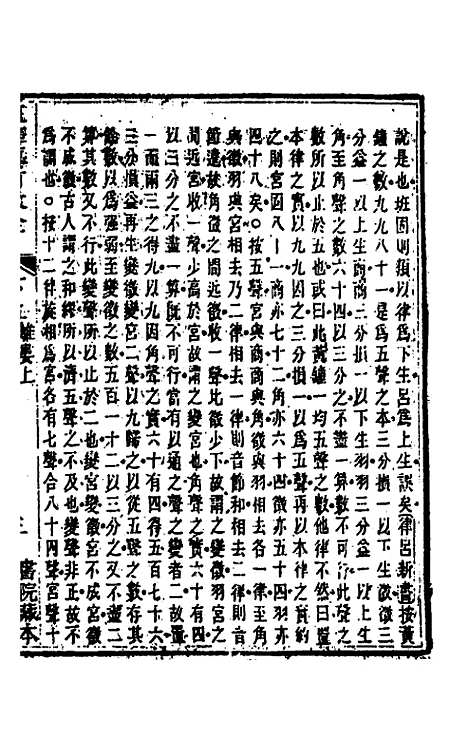 說是也班固則類以律爲下生呂爲上生誤矣律呂新書按黃
鐘之數九九八十一是爲五聲之本三分損一以下生徵徵三
分益一以上生商商三分損一以下生羽羽三分益一以上生
角至角聲之數六十四以三分之不盡一算數不可行此聲之
數所以止於五也或曰此黃鐘一均五聲之數他律不然曰置
本律之實以九九因之三分損一以爲五聲再以本律之實約
之則宮固八十一商亦七十二角亦六十四徵亦五十四羽亦
四十八矣○按五聲宮與商商與角徵與羽相去各一律至角
與徵羽與宮相去乃二律相去一律則音節和相去二律則音
節遠故角徵之間近徵收一聲比徵少下故謂之變徵羽宮之
間近宮收一聲少高於宮故謂之變宮也角聲之實六十有四
以三分之不盡一算旣不可行當有以通之聲之變者二故置
一而兩三之得九以九因角聲之實六十有四得五百七十六
三分損益再生變徵變宮二聲以九歸之以從五聲之數存其
餘數以爲强弱至變徵之數五百一十二以三分之又不盡二
算其數又不行此變聲所以止於二也變宮變徵宮不成宮徵
不成徵古人謂之和繆所以濟五聲之不及也變聲非正故不
爲調也○按十二律旋相爲宮各有七聲合八十四聲宮聲十
雜婁上
書院藏本